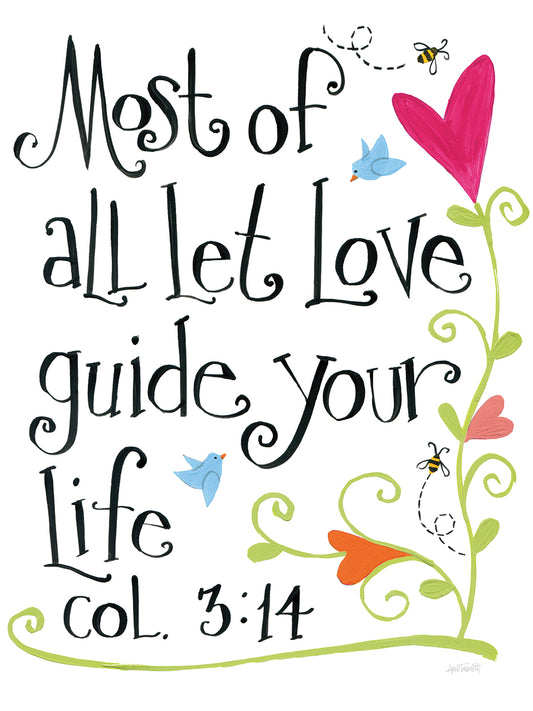 Most of
all Let Love
guide your
Life
COL. 3:14